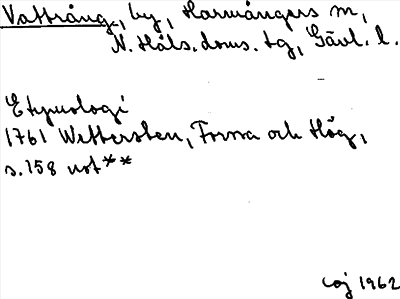 Vattrång, by, Harmångers sn,
N. Häls. doms. tg, Gävl. l.
Etymologi
1761 Wettersten, Forssa och Hög,
s. 158 not**
coj 1962